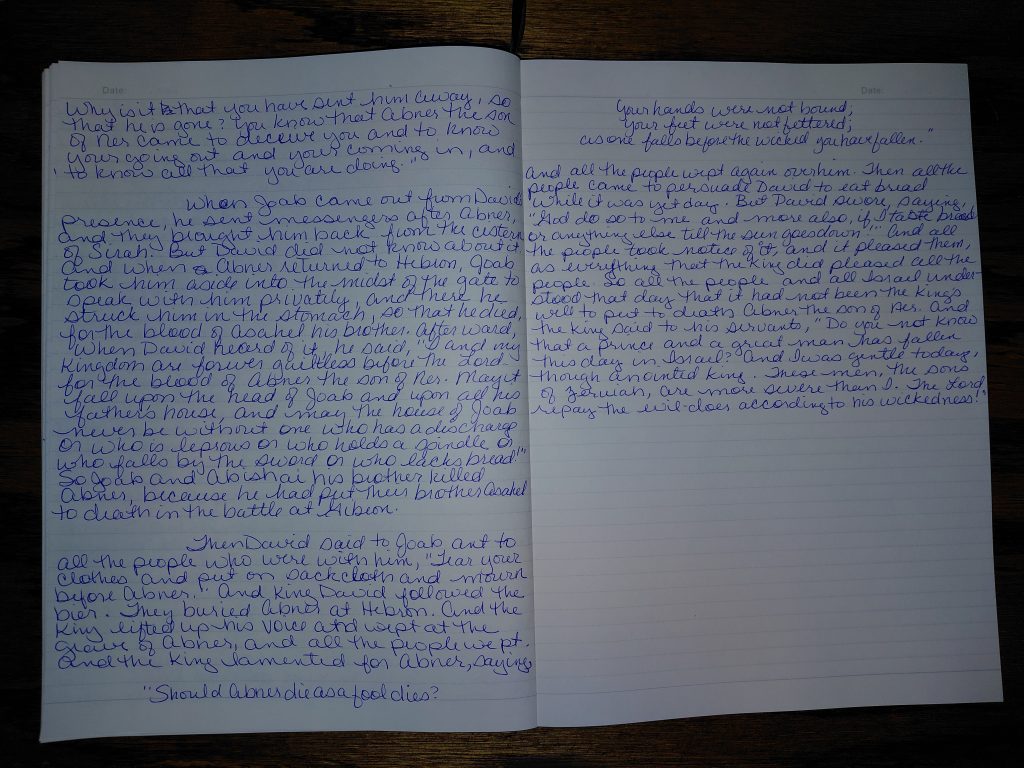 Date:
Why is it that you have sent him away, so
that he is gone? You know that Abner the son
of Ner came to deceive you and to know
your going out and your coming in, and
to know all that you are doing."
When Joab came out from David
presence, he sent messengers after Abner,
and they brought him back from the cistern
of Sirah. But David did not know about it
And when Abner returned to Hebron, Joab
took him aside into the midst of the gate to
speak with him privately, and there he
struck him in the stomach, so that he died,
for the blood of Asahel his brother. Afterward,
when David heard of it, he said, "I and my
Kingdom are forever guiltless before the Lord
for the blood of Abner the son of Ner. May it
fall upon the head of Joab and upon all his
father's house, and may the house of Joab
never be without one who has a discharge
or who is leprous or who holds a spindle or
who falls by the sword or who lacks bread!"
So Joab and Abishai his brother killed
Abner, because he had put their brother Asahel
to death in the battle at Gibeon.
Then David said to Joab ant to
all the people who were with him, "Tear your
clothes and put on sackcloth and mourn
before Abner." And King David followed the
bier. They buried Abner at Hebron. And the
King lifted up his voice and wept at the
grave of Abner, and all the people wept.
And the King lamented for Abner, saying,
"Should Abner die as a fool dies?
Date:
Your hands were not bound;
your feet were not fettered;
as one falls before the wicked you have fallen."
And all the people wept again over him. Then all the
people came to persuade David to eat bread
while it was yet day. But David swore, saying,
"God do so to me and more also, if I taste bread
or anything else till the sun goes down!" And all
the people took notice of it, and it pleased them,
as everything that the King did pleased all the
people. So all the people and all Israel under-
stood that day that it had not been the King's
will to put to death Abner the son of Ner. And
the King said to his servants, "Do you not know
that a prince and a great man has fallen
this day in Israel? And I was gentle today,
though anointed king. These men, the sons
of Zeruiah, are more severe than I. The Lord
repay the evil-doer according to his wickedness!"